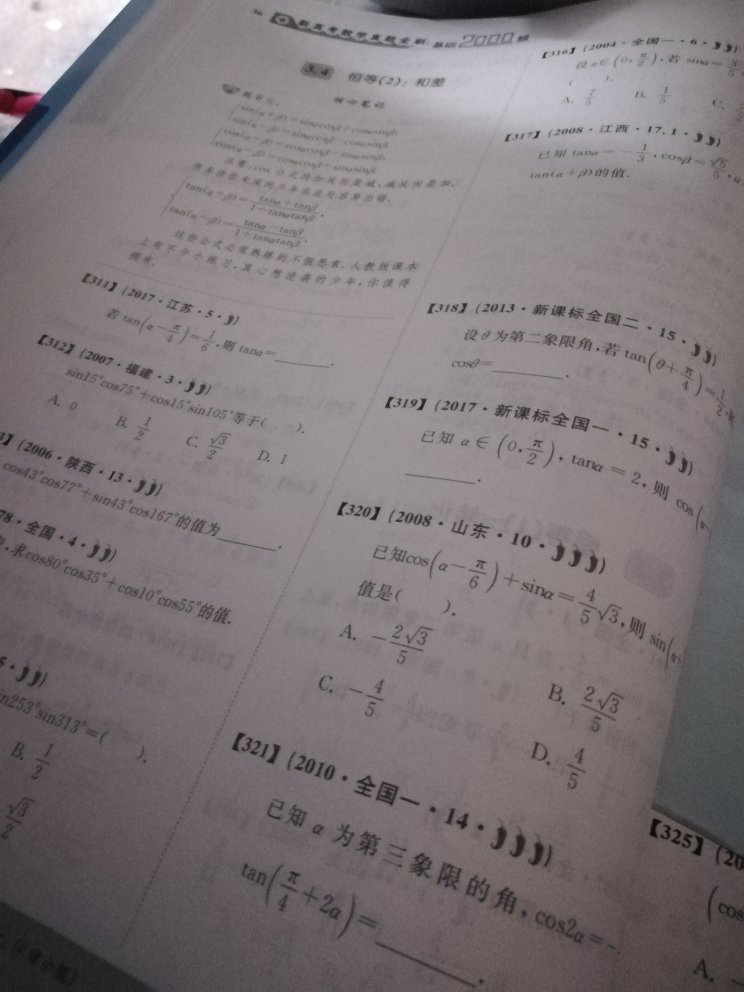 新高考数学真题全刷:基础2000题
3.4 恒等(2):和差
核心笔记
sin(α+β)=sinαcosβ+cosαsinβ,
sin(α-β)=sinαcosβ-cosαsinβ,
cos(α+β)=cosαcosβ-sinαsinβ,
cos(α-β)=cosαcosβ+sinαsinβ.
注意:cos公式的加反而是减,减反而是加,
tan(α+β)=(tanα+tanβ)/(1-tanαtanβ),
tan(α-β)=(tanα-tanβ)/(1+tanαtanβ).
这些公式必须熟练到不假思索,人教版课本
上有不少小练习,真心想逆袭的少年,你值得
拥有.
【311】(2017·江苏·5·)
若tan(α-π/4)=1/6,则tanα=______.
【312】(2007·福建·3·)
sin15°cos75°+cos15°sin105°等于( ).
A. 0 B. 1/2 C. √3/2 D. 1
3】(2006·陕西·13·)
cos43°cos77°+sin43°cos167°的值为______.
78·全国·4·)
,求cos80°cos35°+cos10°cos55°的值.
5·)
in253°sin313°=( ).
B. 1/2
√3/2
【316】(2004·全国一·6·)
设α∈(0,π/2),若sinα=3/5,
( ).
A. 7/5 B. 1/5 C.
【317】(2008·江西·17.1·)
已知tanα=-1/3,cosβ=√5/5,α
tan(α+β)的值.
【318】(2013·新课标全国二·15·)
设θ为第二象限角,若tan(θ+π/4)=1/2,
cosθ=______.
【319】(2017·新课标全国一·15·)
已知α∈(0,π/2),tanα=2,则cos(α-
______.
【320】(2008·山东·10·)
已知cos(α-π/6)+sinα=4/5√3,则sin(α
值是( ).
A. -2√3/5
B. 2√3/5
C. -4/5
D. 4/5
【321】(2010·全国一·14·)
已知α为第三象限的角,cos2α=-
tan(π/4+2α)=______.
【325】(20
(cos
A. -